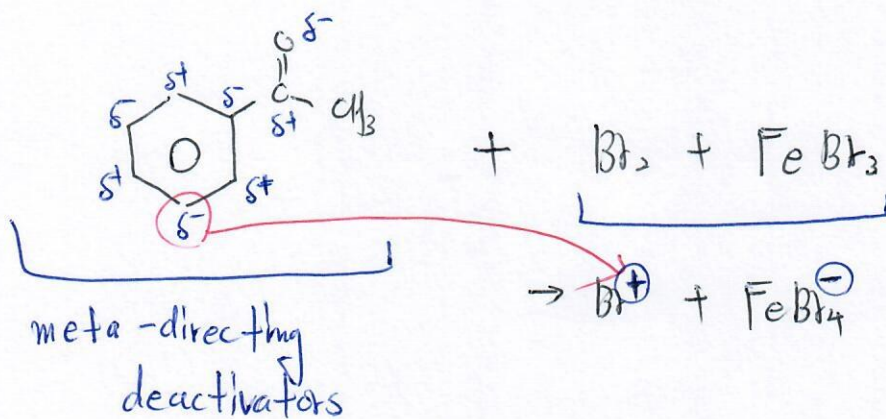 O δ-
δ+ δ- C CH3
δ- δ+
O
δ+ δ+
δ-
+ Br2 + FeBr3
→ Br+ + FeBr4-
meta-directing
deactivators